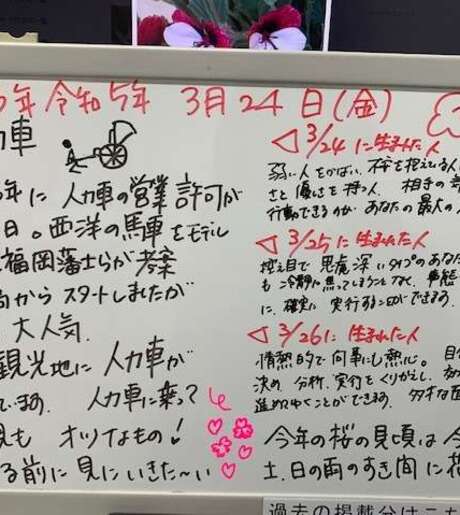 年 令和5年 3月24日(金)
力車
年に 人力車の営業許可が
日。西洋の馬車をモデル
福岡藩士らが考案
からスタートしましたが
大人気.
観光地に 人力車が
ています. 人力車に乗って
見も オツなもの!
る前に 見にいきた〜い
◁3/24に生まれた人
弱い人をかばい、
さと優しさを持つ人. 相手の
行動できるのが あなたの最大の
◁3/25に生まれた人
控え目で 思慮深いタイプのあな
も冷静に焦ってしまうことなく、事態
に、確実に 実行することができます.
◁3/26に生まれた人
情熱的で 何事にも熱心. 目
決め 分析、実行をくりかえし、
進めてゆくことができます.
今年の桜の見頃は 今
土.日の雨のすき間に花
過去の掲載分はこち